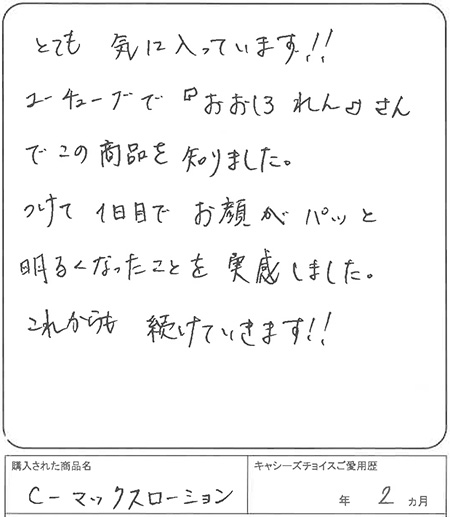 とても 気に入っています!!
ユーチューブで『おおしろ れん』さん
でこの商品を知りました。
つけて 1日目で お顔が パッと
明るくなったことを 実感しました。
これからも 続けていきます!!
購入された商品名
キャシーズチョイスご愛用歴
C-マックスローション
年 2 ヵ月